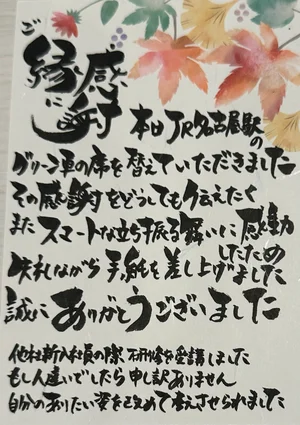 ご縁に感謝
本日JR名古屋駅の
グリーン車の席を替えていただきました
その感謝をどうしても伝えたく
またスマートな立ち振る舞いに感動
したため
失礼ながら手紙を差し上げました
誠にありがとうございました
他社新入社員の際、研修を受講しました
もし人違いでしたら申し訳ありません
自分の在りたい姿を改めて考えさせられました